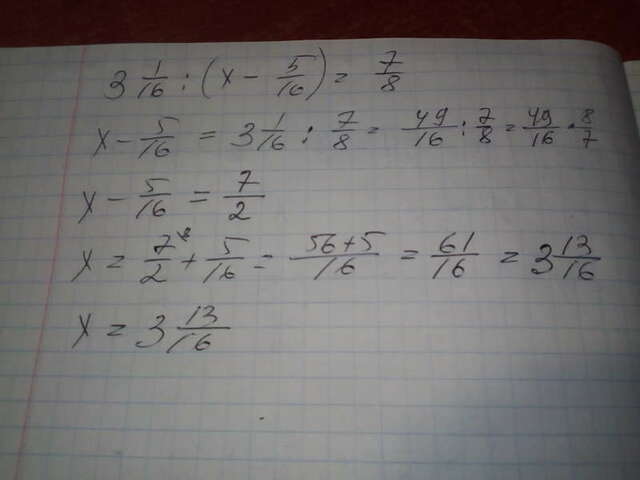 3 1/16 : (x − 5/16) = 7/8
x − 5/16 = 3 1/16 : 7/8 = 49/16 : 7/8 = 49/16 · 8/7
x − 5/16 = 7/2
x = 7/2 ⁸ + 5/16 = (56+5)/16 = 61/16 = 3 13/16
x = 3 13/16